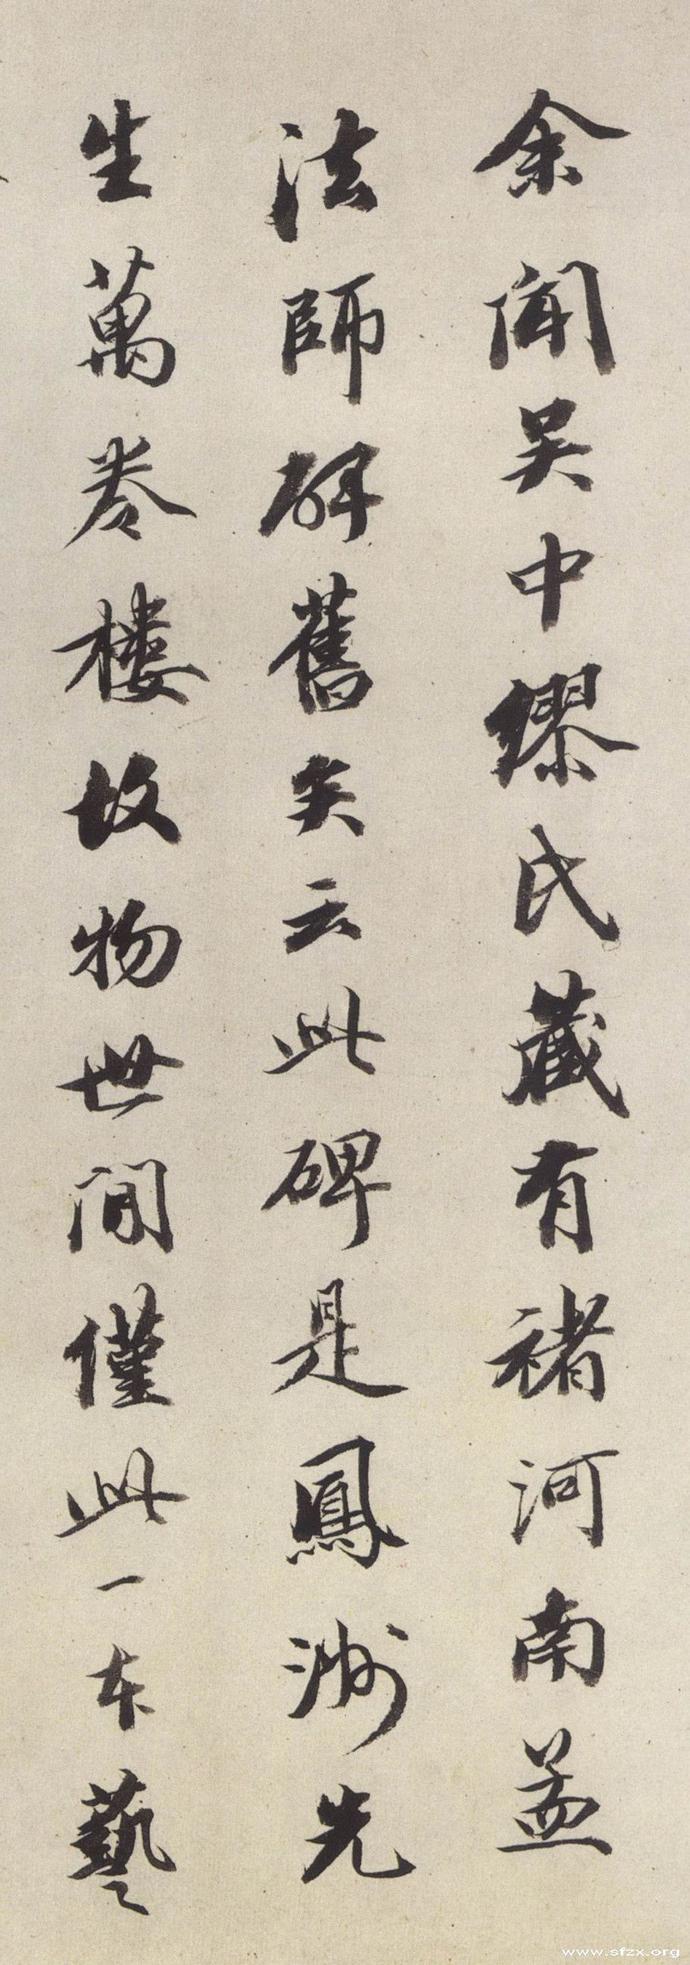 余聞吴中繆氏藏有褚河南孟
法師碑舊矣云此碑是鳳洲先
生萬卷樓故物世間僅此一本藝
www.sfzx.org